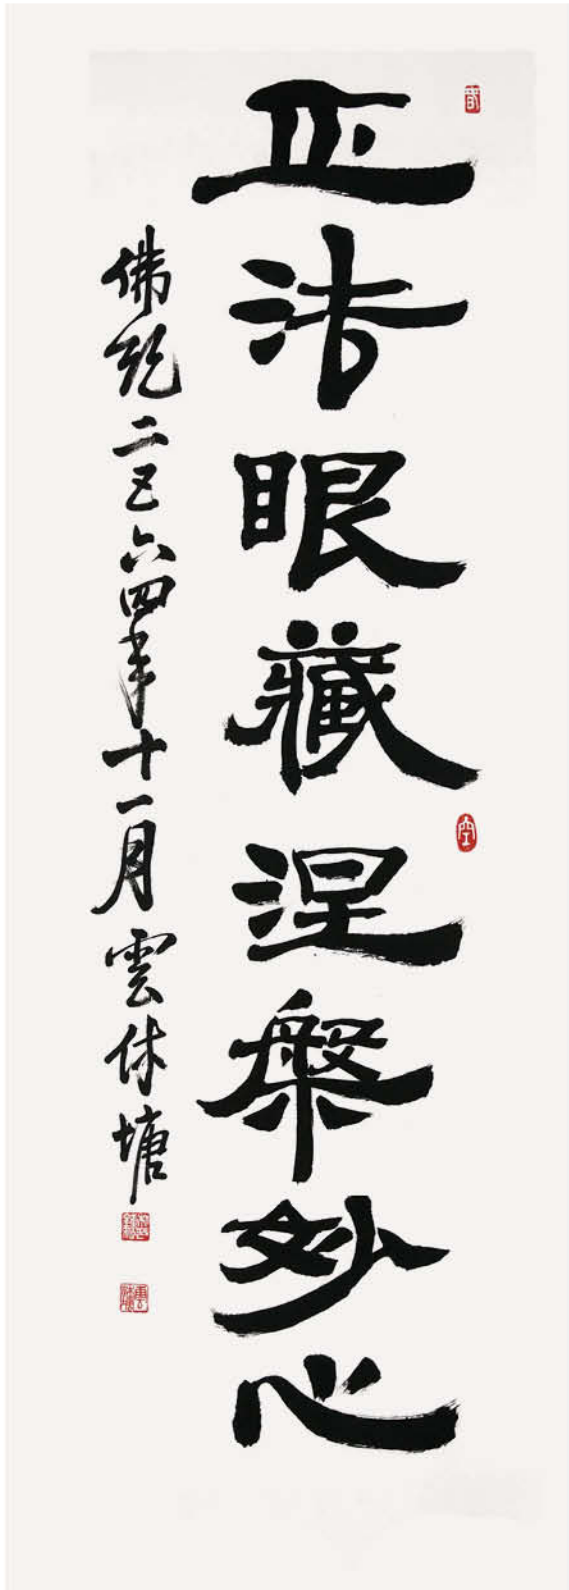 正法眼藏涅槃妙心
佛紀二五六四年十一月雲休塘
空